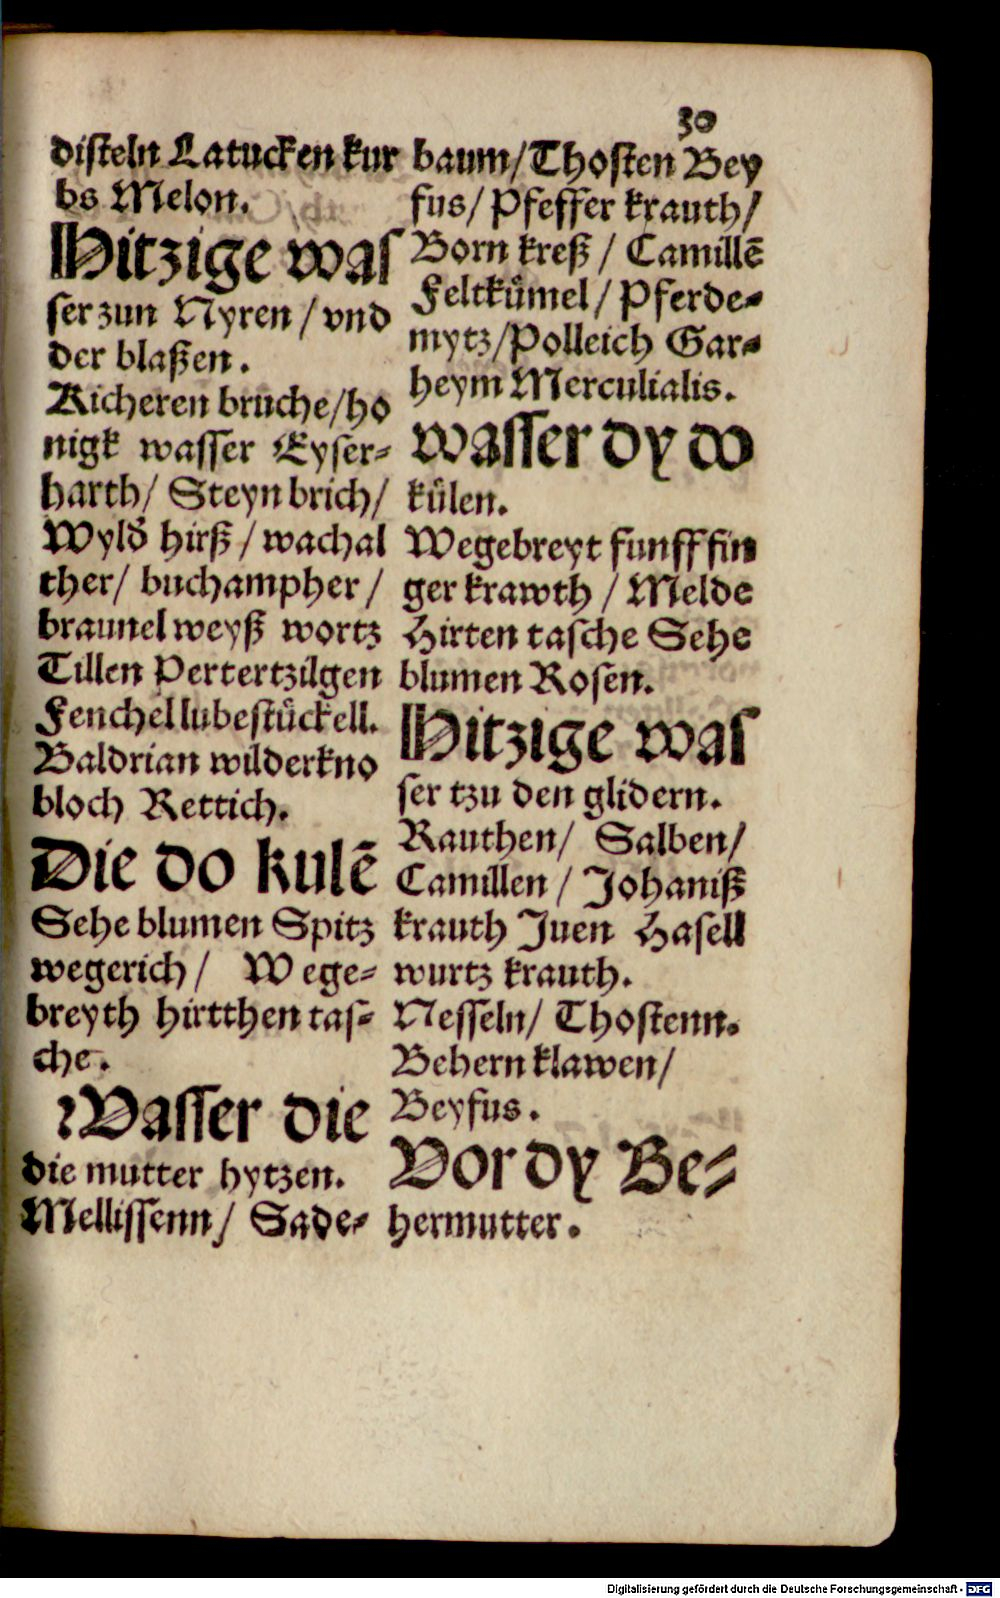 30
disteln Latucken kur
bs Melon.
Hitzige was
ser zun Nyren / vnd
der blaßen.
Kicheren brüche/ho
nigk wasser Eyser-
harth/ Steyn brich/
Wyld hirß / wachal
ther/ buchampher /
braunel weyß wortz
Tillen Pertertzilgen
Fenchel lubestückell.
Baldrian wilderkno
bloch Rettich.
Die do kulē
Sehe blumen Spitz
wegerich / Wege-
breyth hirtthen tas-
che.
Wasser die
die mutter hytzen.
Mellissenn/ Sade-
baum/Thosten Bey
fus/ Pfeffer krauth/
Born kreß / Camillē
Feltkümel / Pferde-
mytz/Polleich Gar-
heym Merculialis.
Wasser dy do
külen.
Wegebreyt funff fin
ger krawth / Melde
Hirten tasche Sehe
blumen Rosen.
Hitzige was
ser tzu den glidern.
Rauthen/ Salben/
Camillen / Johaniß
krauth Juen Hasell
wurtz krauth.
Nesseln/ Thostenn.
Behern klawen/
Beyfus.
Vor dy Be-
hermutter.
Digitalisierung gefördert durch die Deutsche Forschungsgemeinschaft - DFG